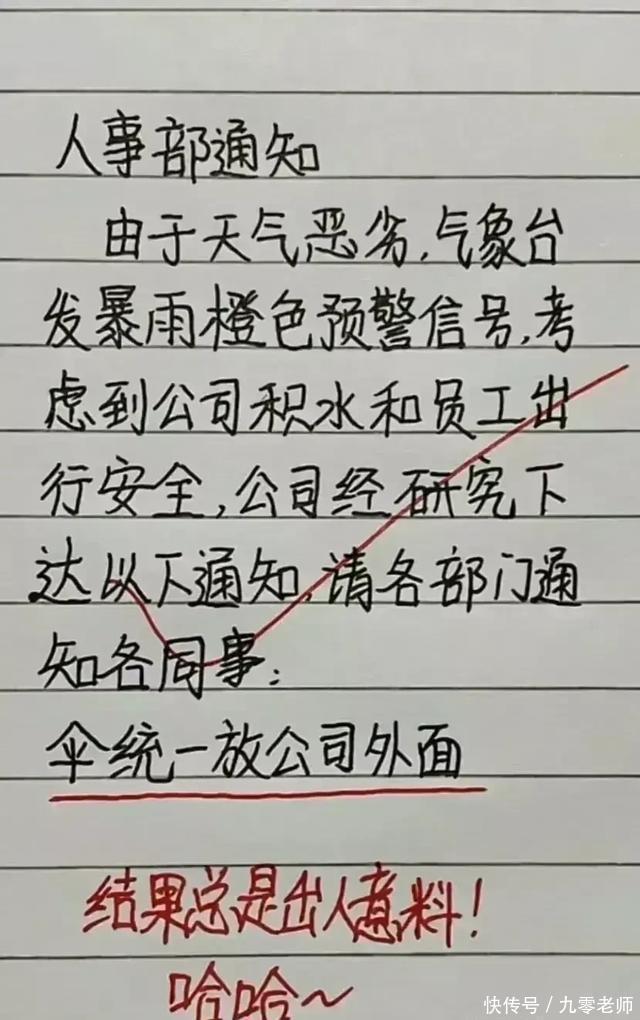 人事部通知
由于天气恶劣,气象台
发暴雨橙色预警信号,考
虑到公司积水和员工出
行安全,公司经研究下
达以下通知,请各部门通
知各同事:
伞统一放公司外面
结果总是出人意料!
哈哈~
快传号/九零老师